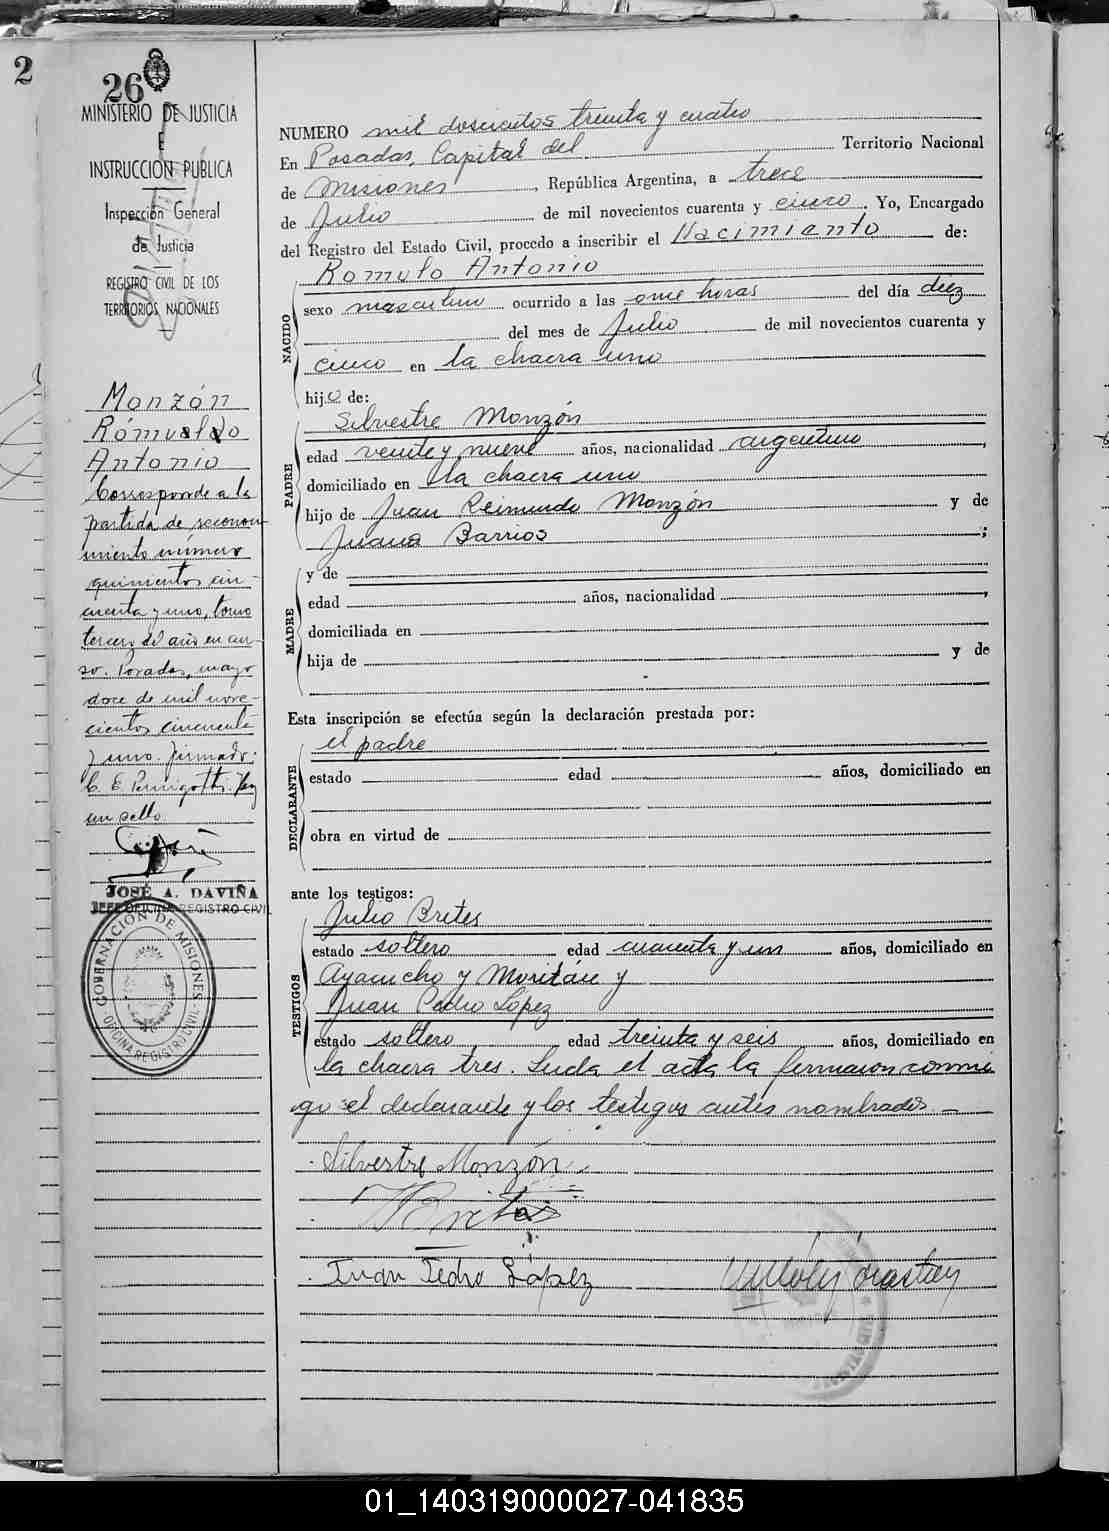 2
26
MINISTERIO DE JUSTICIA
E
INSTRUCCION PUBLICA
Inspección General
de Justicia
REGISTRO CIVIL DE LOS
TERRITORIOS NACIONALES
Monzón
Rómulo
Antonio
Corresponde a la
partida de reconoci
miento número
quinientos cin-
cuenta y uno, tomo
tercero del año en cur-
so. Posadas, mayo
doce de mil nove-
cientos cincuenta
y uno. firmado:
C. E. Hay
un sello
JOSÉ A. DAVIÑA
JEFE OFICINA REGISTRO CIVIL
GOBERNACIÓN DE MISIONES
OFICINA REGISTRO CIVIL
NUMERO mil doscientos treinta y cuatro
En Posadas, Capital del Territorio Nacional
de Misiones, República Argentina, a trece
de Julio de mil novecientos cuarenta y cinco. Yo, Encargado
del Registro del Estado Civil, procedo a inscribir el Nacimiento de:
Romulo Antonio
NACIDO
sexo masculino ocurrido a las once horas del día diez
del mes de Julio de mil novecientos cuarenta y
cinco en la chacra uno
hijo de:
Silvestre Monzón
PADRE
edad veinte y nueve años, nacionalidad argentino,
domiciliado en la chacra uno
hijo de Juan Reimundo Monzón y de
Juana Barrios;
MADRE
y de
edad años, nacionalidad,
domiciliada en
hija de y de
Esta inscripción se efectúa según la declaración prestada por:
el padre
DECLARANTE
estado edad años, domiciliado en
obra en virtud de
ante los testigos:
Julio Brites
TESTIGOS
estado soltero edad cuarenta y un años, domiciliado en
Ayacucho y Moritán y
Juan Pedro López
estado soltero edad treinta y seis años, domiciliado en
la chacra tres. Leida el acta la firmaron conmi
go el declarante y los testigos antes nombrados.—
Silvestre Monzón
Brites
Juan Pedro López
01_140319000027-041835